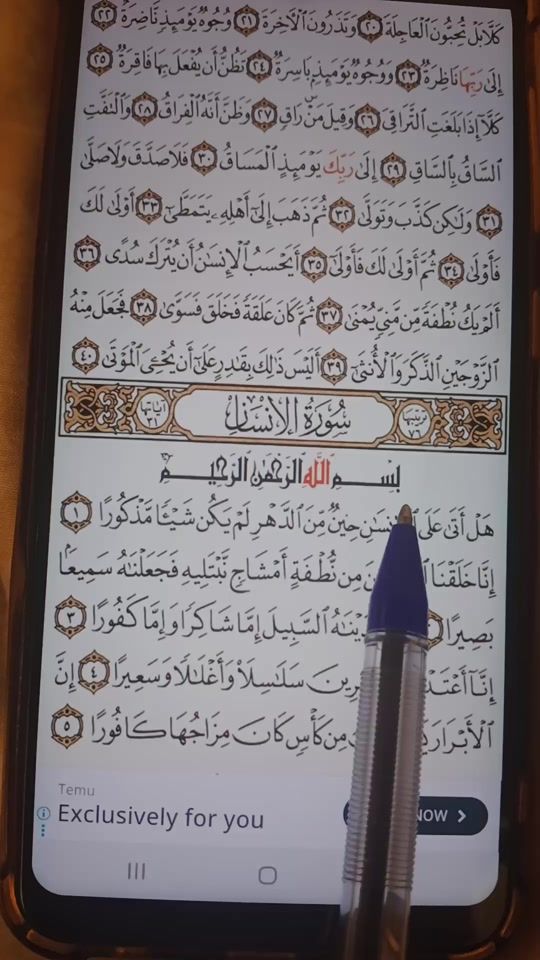 كَلَّا بَلْ تُحِبُّونَ الْعَاجِلَةَ ٢٠ وَتَذَرُونَ الْآخِرَةَ ٢١ وُجُوهٌ يَوْمَئِذٍ نَّاضِرَةٌ ٢٢
إِلَىٰ رَبِّهَا نَاظِرَةٌ ٢٣ وَوُجُوهٌ يَوْمَئِذٍ بَاسِرَةٌ ٢٤ تَظُنُّ أَن يُفْعَلَ بِهَا فَاقِرَةٌ ٢٥
كَلَّا إِذَا بَلَغَتِ التَّرَاقِيَ ٢٦ وَقِيلَ مَنْ ۜ رَاقٍ ٢٧ وَظَنَّ أَنَّهُ الْفِرَاقُ ٢٨ وَالْتَفَّتِ
السَّاقُ بِالسَّاقِ ٢٩ إِلَىٰ رَبِّكَ يَوْمَئِذٍ الْمَسَاقُ ٣٠ فَلَا صَدَّقَ وَلَا صَلَّىٰ
٣١ وَلَٰكِن كَذَّبَ وَتَوَلَّىٰ ٣٢ ثُمَّ ذَهَبَ إِلَىٰ أَهْلِهِ يَتَمَطَّىٰ ٣٣ أَوْلَىٰ لَكَ
فَأَوْلَىٰ ٣٤ ثُمَّ أَوْلَىٰ لَكَ فَأَوْلَىٰ ٣٥ أَيَحْسَبُ الْإِنسَانُ أَن يُتْرَكَ سُدًى ٣٦
أَلَمْ يَكُ نُطْفَةً مِّن مَّنِيٍّ يُمْنَىٰ ٣٧ ثُمَّ كَانَ عَلَقَةً فَخَلَقَ فَسَوَّىٰ ٣٨ فَجَعَلَ مِنْهُ
الزَّوْجَيْنِ الذَّكَرَ وَالْأُنثَىٰ ٣٩ أَلَيْسَ ذَٰلِكَ بِقَادِرٍ عَلَىٰ أَن يُحْيِيَ الْمَوْتَىٰ ٤٠
ترتيبها ٧٦ سُورَةُ الْإِنسَانِ آياتها ٣١
بِسْمِ اللَّهِ الرَّحْمَٰنِ الرَّحِيمِ
هَلْ أَتَىٰ عَلَى نسَانِ حِينٌ مِّنَ الدَّهْرِ لَمْ يَكُن شَيْئًا مَّذْكُورًا ١
إِنَّا خَلَقْنَا مِن نُّطْفَةٍ أَمْشَاجٍ نَّبْتَلِيهِ فَجَعَلْنَاهُ سَمِيعًا
بَصِيرًا يْنَاهُ السَّبِيلَ إِمَّا شَاكِرًا وَإِمَّا كَفُورًا ٣
إِنَّا أَعْتَدْ رِينَ سَلَاسِلَا وَأَغْلَالًا وَسَعِيرًا ٤ إِنَّ
الْأَبْرَارَ مِن كَأْسٍ كَانَ مِزَاجُهَا كَافُورًا ٥
Temu
Exclusively for you
NOW